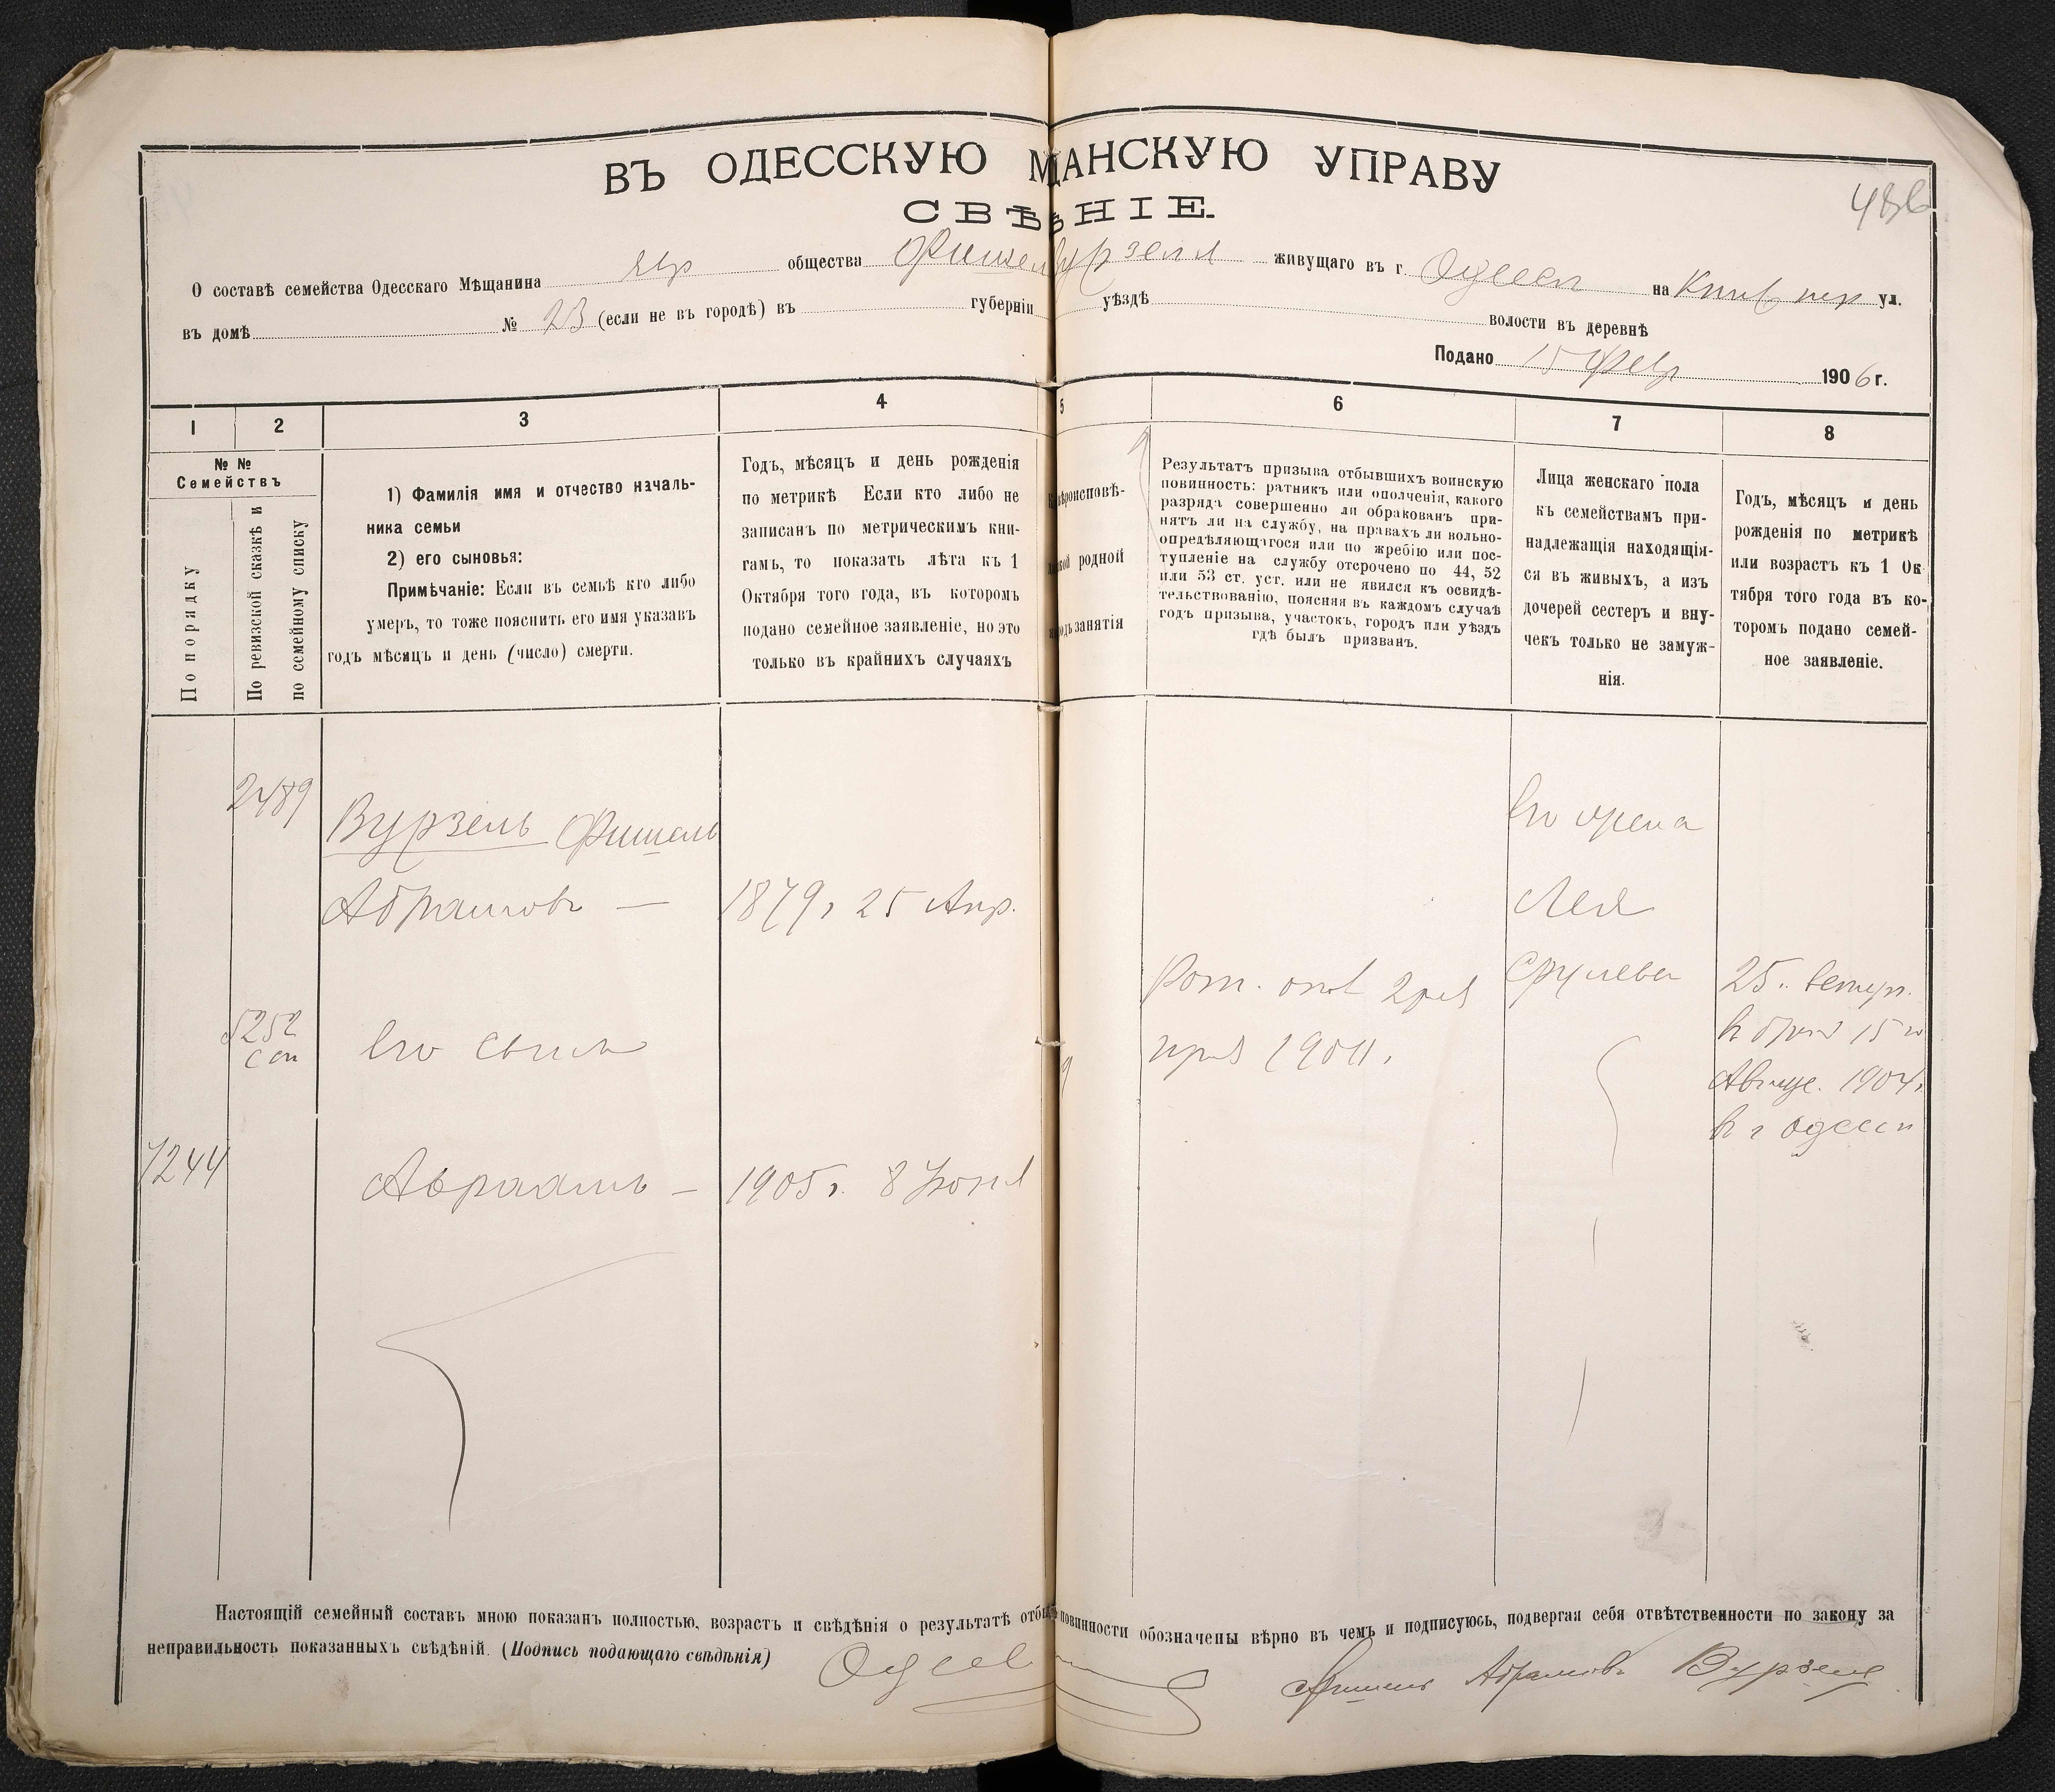 ВЪ ОДЕССКУЮ МѢЩАНСКУЮ УПРАВУ
СВѢДѢНІЕ.
486
О составѣ семейства Одесскаго Мѣщанина евр общества Фишеля Вурзеля живущаго въ г Одессѣ на ул.
въ домѣ № 23 (если не въ городѣ) въ губерніи уѣздѣ волости въ деревнѣ
Подано 15 Февр 1906 г.
1 2 3 4 5 6 7 8
№ №
Семействъ
По порядку
По ревизской сказкѣ и
по семейному списку
1) Фамилія имя и отчество началь-
ника семьи
2) его сыновья:
Примѣчаніе: Если въ семьѣ кто либо
умеръ, то тоже пояснить его имя указавъ
годъ мѣсяцъ и день (число) смерти.
Годъ, мѣсяцъ и день рожденія
по метрикѣ Если кто либо не
записанъ по метрическимъ кни-
гамъ, то показать лѣта къ 1
Октября того года, въ которомъ
подано семейное заявленіе, но это
только въ крайнихъ случаяхъ
вѣроисповѣ-
родной
занятія
Результатъ призыва отбывшихъ воинскую
повинность: ратникъ или ополченія, какого
разряда совершенно ли обракованъ при-
нятъ ли на службу, на правахъ ли вольно-
опредѣляющагося или по жребію или пос-
тупленіе на службу отсрочено по 44, 52
или 53 ст. уст. или не явился къ освидѣ-
тельствованію, поясняя въ каждомъ случаѣ
годъ призыва, участокъ, городъ или уѣздъ
гдѣ былъ призванъ.
Лица женскаго пола
къ семействамъ при-
надлежащія находящія-
ся въ живыхъ, а изъ
дочерей сестеръ и вну-
чекъ только не замуж-
нія.
Годъ, мѣсяцъ и день
рожденія по метрикѣ
или возрастъ къ 1 Ок
тября того года въ ко-
торомъ подано семей-
ное заявленіе.
2489
Вурзель Фишель
Абрамовъ — 1879г 25 Апр.
Его жена
Лея
Срулева
Рат. опол 2 раз
приз 1901г.
25 л.
в брак 15 го
Август. 1904г.
в г Одессѣ
5252
сп
Его сынъ
7244
Авраамъ — 1905г. 8 Іюня
Настоящій семейный составъ мною показанъ полностью, возрастъ и свѣдѣнія о результатѣ повинности обозначены вѣрно въ чемъ и подписуюсь, подвергая себя отвѣтственности по закону за
неправильность показанныхъ свѣдѣній. (Подпись подающаго свѣдѣнія)
Фишель Абрамовъ Вурзель